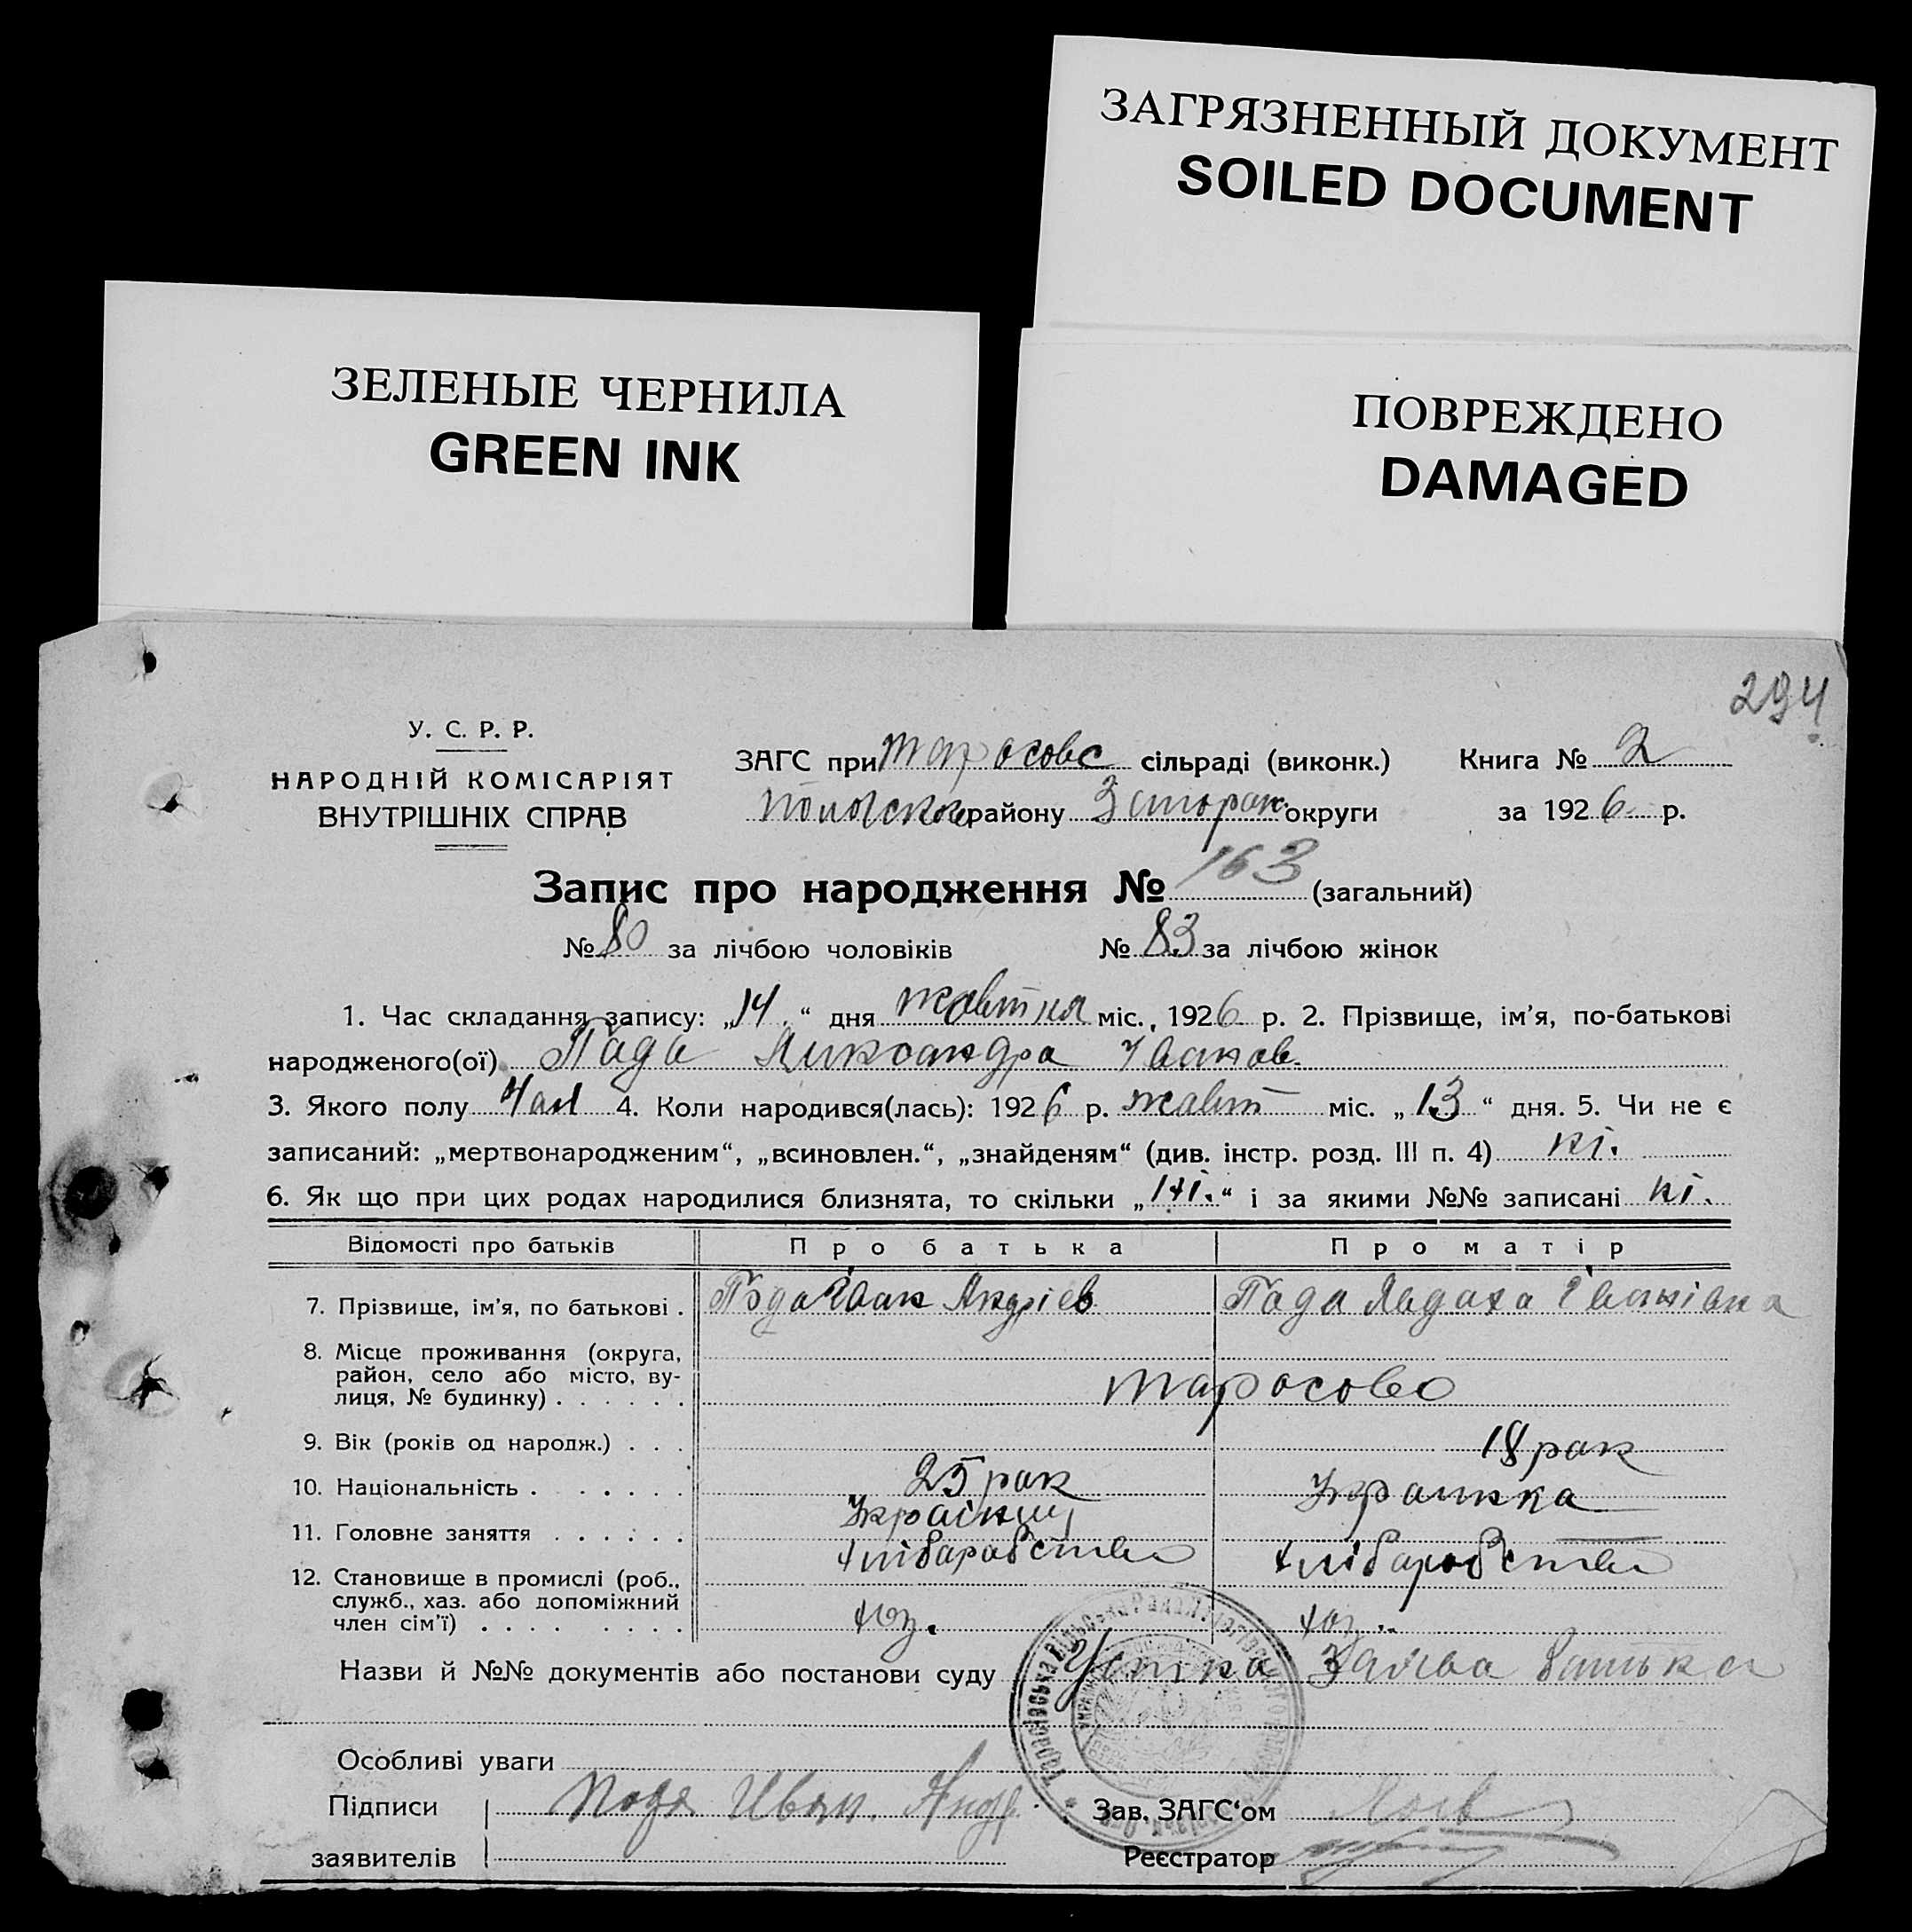 ЗАГРЯЗНЕННЫЙ ДОКУМЕНТ
SOILED DOCUMENT
ЗЕЛЕНЫЕ ЧЕРНИЛА
GREEN INK
ПОВРЕЖДЕНО
DAMAGED
294
У. С. Р. Р.
НАРОДНІЙ КОМІСАРІЯТ
ВНУТРІШНІХ СПРАВ
ЗАГС при Таросовс сільраді (виконк.) Книга № 2
району округи за 1926 р.
Запис про народження № 163 (загальний)
№ 80 за лічбою чоловіків № 83 за лічбою жінок
1. Час складання запису: „14.“ дня жовтня міс., 1926 р. 2. Прізвище, ім’я, по-батькові
народженого(ої) Пада Иванов.
3. Якого полу Чол 4. Коли народився(лась): 1926 р. жовт міс. „13“ дня. 5. Чи не є
записаний: „мертвонародженим“, „всиновлен.“, „знайденям“ (див. інстр. розд. III п. 4) ні.
6. Як що при цих родах народилися близнята, то скільки „ні.“ і за якими №№ записані ні.
Відомості про батьків Про батька Про матір
7. Прізвище, ім’я, по батькові . Пода Іван Андріев Пада Явдаха Іванівна
8. Місце проживання (округа,
район, село або місто, ву-
лиця, № будинку) . . . . . . Таросово
9. Вік (років од народж.) . . . 25 рак 18 рак
10. Національність . . . . . . Українець Украинка
11. Головне заняття . . . . . . хлібарабство хлібаробство
12. Становище в промислі (роб.,
служб., хаз. або допоміжний
член сім’ї) . . . . . . . . хоз. хоз.
Назви й №№ документів або постанови суду Устна Заява батька
Особливі уваги
Підписи Пода Иван. Андр. Зав. ЗАГС‘ом
заявителів Реєстратор